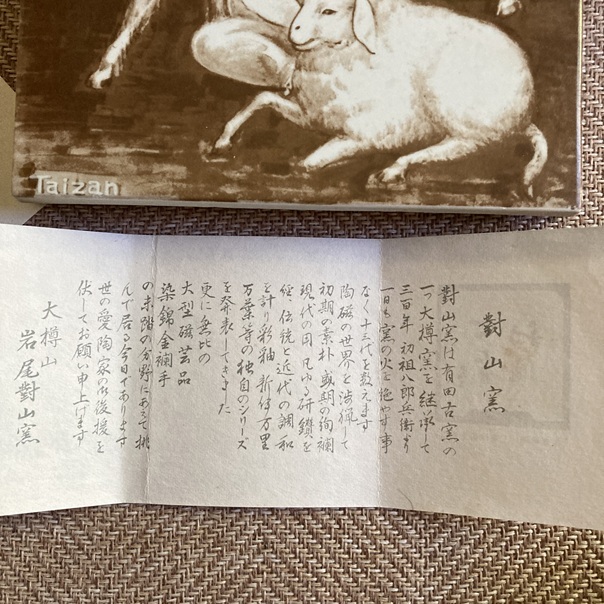 Taizan
對山窯
對山窯は有田古窯の
一つ大樽窯を継承して
三百年 初祖八郎兵衛より
一日も窯の火を絶やす事
なく十三代を数えます
陶磁の世界を渉猟して
初期の素朴 盛期の絢爛
現代の用 凡ゆる研鑽を
経 伝統と近代の調和
を計り彩釉 新伊万里
万葉等の独自のシリーズ
を発表してきました
更に無比の
大型磁芸品
染錦金襴手
の未踏の分野にあえて挑
んで居る今日であります
世の愛陶家の御後援を
伏してお願い申上げます
大樽山
岩尾對山窯